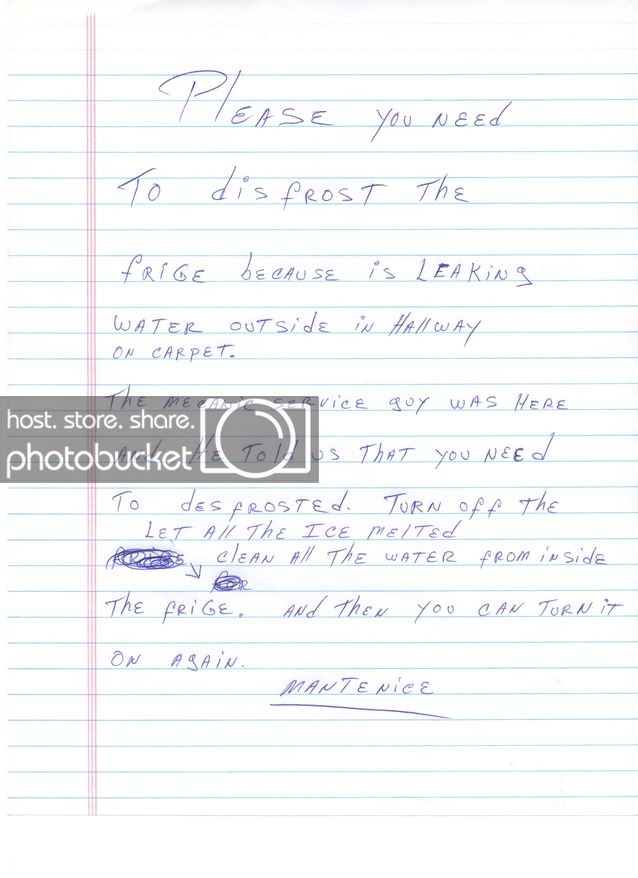 PLEASE YOU NEEd
TO disfROST THE
fRiGE bECAUSE iS LEAKiNg
WATER OUTSidE iN HAllWAY
ON CARPET.
THE MECANIC SERViCE gUY WAS HERE
host. store. share.
photobucket
ANd HE TOld US THAT YOU NEEd
TO dESfROSTEd. TURN Off THE
LET All THE ICE MElTEd
ClEAN All THE WATER fROM iNSidE
THE fRiGE. ANd THEN YOU CAN TURN iT
ON AgAiN.
MANTENiCE